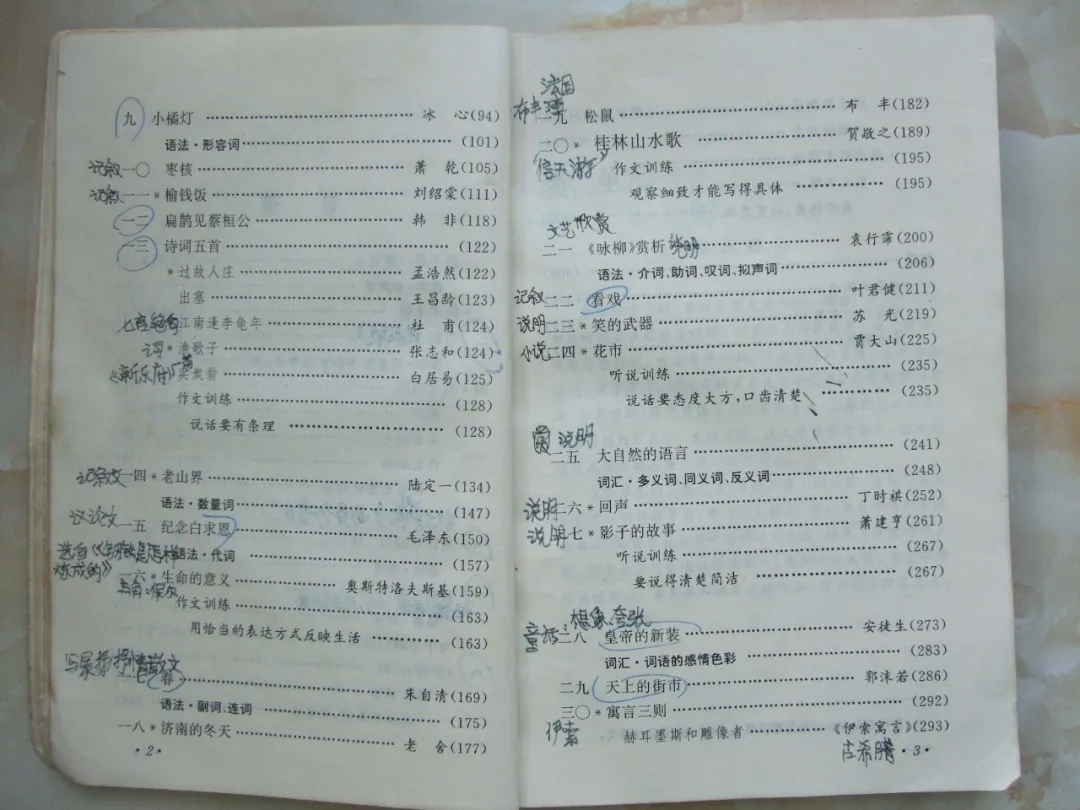 九 小橘灯 …… 冰 心(94)
语法·形容词 …… (101)
记叙 一〇 枣核 …… 萧 乾(105)
记叙 一一* 榆钱饭 …… 刘绍棠(111)
一二 扁鹊见蔡桓公 …… 韩 非(118)
一三 诗词五首 …… (122)
*过故人庄 …… 孟浩然(122)
出塞 …… 王昌龄(123)
七言绝句 江南逢李龟年 …… 杜 甫(124)
词 *渔歌子 …… 张志和(124)
《新乐府》 卖炭翁 …… 白居易(125)
作文训练 …… (128)
说话要有条理 …… (128)
记叙文 一四* 老山界 …… 陆定一(134)
语法·数量词 …… (147)
议论文 一五 纪念白求恩 …… 毛泽东(150)
选自《钢铁是怎样
语法·代词 …… (157)
炼成的》
一六* 生命的意义 …… 奥斯特洛夫斯基(159)
作文训练 …… (163)
用恰当的表达方式反映生活 …… (163)
写景抒情散文
一七 春 …… 朱自清(169)
语法·副词、连词 …… (175)
一八* 济南的冬天 …… 老 舍(177)
·2·
法国
布丰
一九 松鼠 …… 布 丰(182)
二〇* 桂林山水歌 …… 贺敬之(189)
“信天游” 作文训练 …… (195)
观察细致才能写得具体 …… (195)
文艺欣赏
二一 《咏柳》赏析 说明 …… 袁行霈(200)
语法·介词、助词、叹词、拟声词 …… (206)
记叙 二二 看戏 …… 叶君健(211)
说明 二三* 笑的武器 …… 苏 光(219)
小说 二四* 花市 …… 贾大山(225)
听说训练 …… (235)
说话要态度大方，口齿清楚 …… (235)
说明
二五 大自然的语言 …… (241)
词汇·多义词、同义词、反义词 …… (248)
说明 二六* 回声 …… 丁时祺(252)
说明 二七* 影子的故事 …… 萧建亨(261)
听说训练 …… (267)
要说得清楚简洁 …… (267)
想象 夸张
童话 二八 皇帝的新装 …… 安徒生(273)
词汇·词语的感情色彩 …… (283)
二九 天上的街市 …… 郭沫若(286)
三〇* 寓言三则 …… (292)
伊索 赫耳墨斯和雕像者 …… 《伊索寓言》(293)
古希腊 ·3·